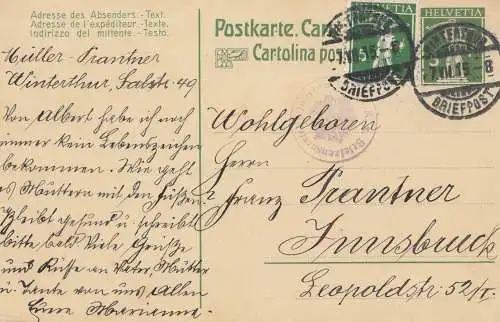 Adresse des Absenders. - Text.
Adresse de l'expéditeur. - Texte.
Indirizzo del mittente. - Testo.
Postkarte. Car
Cartolina pos
HELVETIA
HELVETIA
7.VII.15 - 8
BRIEFPOST
WINTERTHUR
7.VII.15 - 8
BRIEFPOST
Müller-Prantner
Winterthur, Salstr. 49
Von Albert habe ich noch
immer kein Lebenszeichen
bekommen. Wie geht
es Müttern mit den Füssen?
Bleibt gesund u schreibt
bitte bald Viele Grüsse
und Küsse an Vater, Mutter
u. Tante von uns Allen
Eure Marianne.
Wohlgeboren
Herrn
Franz Prantner
Innsbruck
Leopoldstr. 52/I.